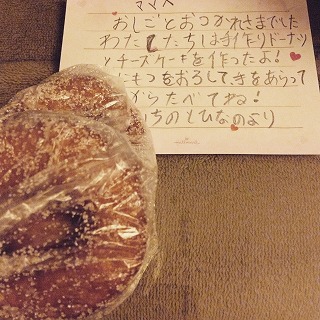 ママへ
おしごとおつかれさまでした
わたしたちは手作りドーナツ
とチーズケーキを作ったよ!
にもつをおろしてきをあらって
からたべてね!
ちのとひなのより